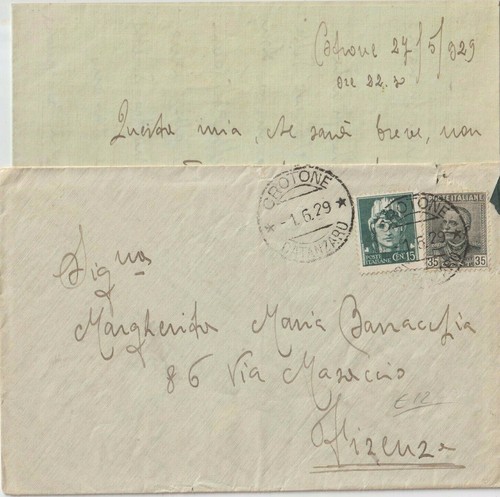 Cotrone 27/5/929
ore 22.
Questa mia, che sarà breve, non
CROTONE
-1.6.29
CATANZARO
POSTE
ITALIANE
CENT. 15
CROTONE
6.29
POSTE ITALIANE
35 35
Sig.na
Margherita Maria
86 Via Masaccio
Firenze
€12